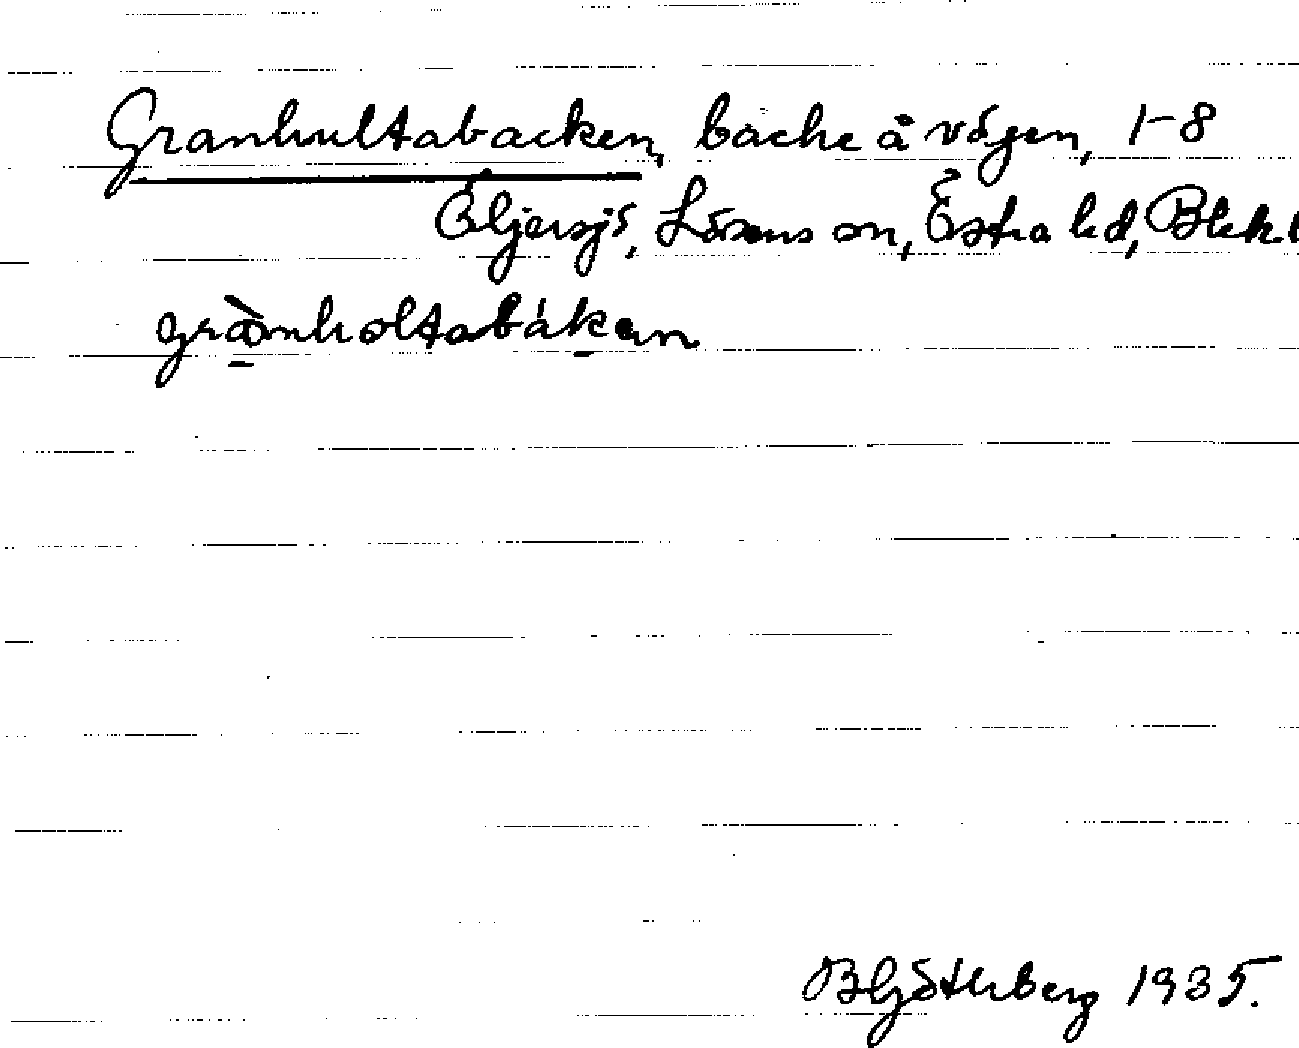 Granhultabacken, backe å vägen, 1-8
Öljersjö, Lösens sn, Östra hd, Blek
grànholtabákan
B Götlerberg 1935.